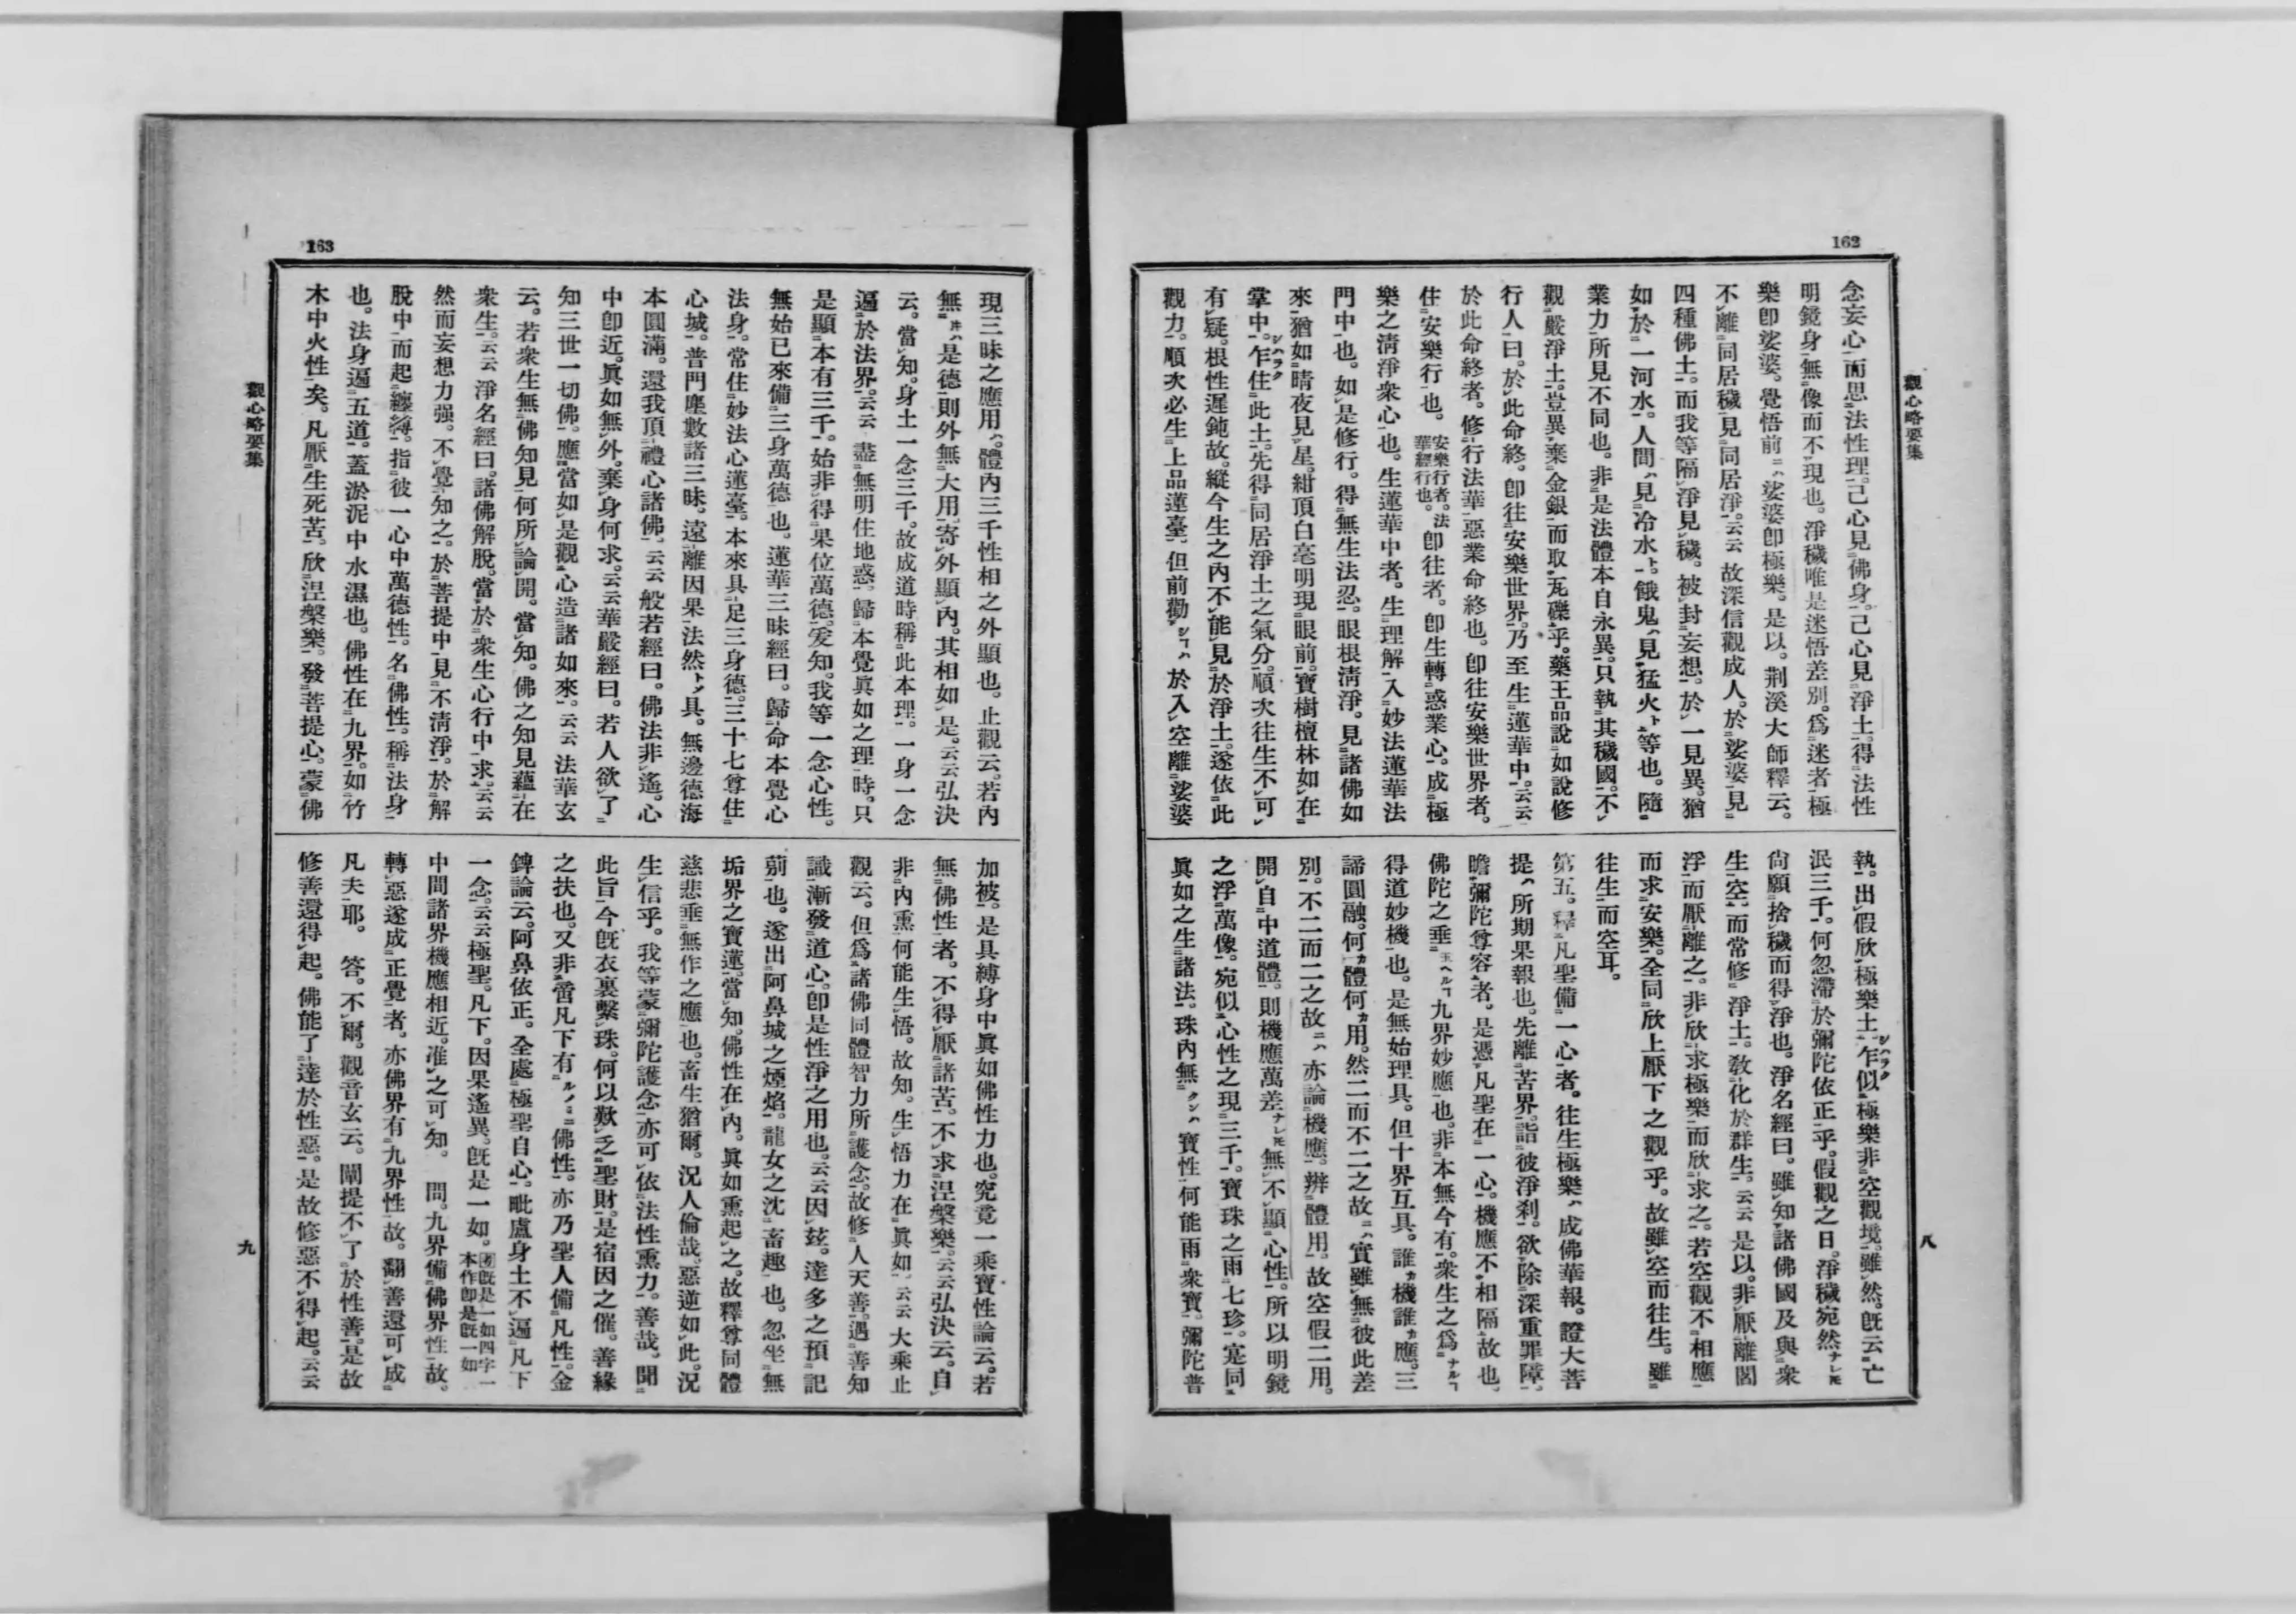 162
觀心略要集
八
念妄心而思法性理。己心見佛身。己心見淨土。得法性
明鏡身無像而不現也。淨穢唯是迷悟差別。爲迷者極
樂卽娑婆。覺悟前ニハ娑婆卽極樂。是以。荆溪大師釋云。
不離同居穢見同居淨。云云 故深信觀成人。於娑婆見
四種佛土。而我等隔淨見穢。被封妄想。於一見異。猶
如於一河水。人間ハ見冷水ト。餓鬼ハ見猛火ト等也。隨
業力所見不同也。非是法體本自永異。只執其穢國。不
觀嚴淨土。豈異棄金銀而取瓦礫乎。藥王品說如說修
行人曰。於此命終。卽往安樂世界。乃至生蓮華中。云云
於此命終者。修行法華惡業命終也。卽往安樂世界者。
住安樂行也。安樂行者。法華經行也。卽往者。卽生轉惑業心。成極
樂之淸淨衆心也。生蓮華中者。生理解入妙法蓮華法
門中也。如是修行。得無生法忍。眼根淸淨。見諸佛如
來猶如晴夜見星。紺頂白毫明現眼前。寶樹檀林如在
掌中。乍シハラク住此土。先得同居淨土之氣分。順次往生不可
有疑。根性遲鈍故。縱今生之內不能見於淨土。遂依此
觀力。順次必生上品蓮臺。但前勸シコトハ於入空離娑婆
執。出假欣極樂土。乍シハラク似極樂非空觀境。雖然。旣云亡
泯三千。何忽滯於彌陀依正乎。假觀之日。淨穢宛然ナレ𪜈
尙願捨穢而得淨也。淨名經曰。雖知諸佛國及與衆
生空。而常修淨土。敎化於群生。云云 是以。非厭離閻
浮而厭離之。非欣求極樂而欣求之。若空觀不相應
而求安樂。全同欣上厭下之觀乎。故雖空而往生。雖
往生而空耳。
第五。釋凡聖備一心者。往生極樂ハ成佛華報。證大菩
提ハ所期果報也。先離苦界詣彼淨刹。欲除深重罪障。
瞻彌陀尊容者。是憑凡聖在一心。機應不相隔故也。
佛陀之垂玉ヘルコト九界妙應也。非本無今有。衆生之爲ナルコト
得道妙機也。是無始理具。但十界互具。誰カ機誰カ應。三
諦圓融。何カ體何カ用。然二而不二之故ニハ實雖無彼此差
別。不二而二之故ニハ亦論機應。辨體用。故空假二用。
開自中道體。則機應萬差ナレ𪜈無不顯心性。所以明鏡
之浮萬像。宛似心性之現三千。寶珠之雨七珍。寔同
眞如之生諸法。珠內無クンハ寶性何能雨衆寶。彌陀普
163
觀心略要集
九
現三昧之應用ハ。體內三千性相之外顯也。止觀云。若內
無キハ是德則外無大用。寄外顯內。其相如是。云云 弘決
云。當知。身土一念三千。故成道時稱此本理。一身一念
遍於法界。云云 盡無明住地惑。歸本覺眞如之理時。只
是顯本有三千。始非得果位萬德。爰知。我等一念心性。
無始已來備三身萬德也。蓮華三昧經曰。歸命本覺心
法身。常住妙法心蓮臺。本來具足三身德。三十七尊住
心城。普門塵數諸三昧。遠離因果法然トシテ具。無邊德海
本圓滿。還我頂禮心諸佛。云云 般若經曰。佛法非遙。心
中卽近。眞如無外。棄身何求。云云 華嚴經曰。若人欲了
知三世一切佛。應當如是觀心造諸如來。云云 法華玄
云。若衆生無佛知見何所論開。當知。佛之知見蘊在
衆生。云云 淨名經曰。諸佛解脫。當於衆生心行中求。云云
然而妄想力强。不覺知之。於菩提中見不淸淨。於解
脫中而起纏縛。指彼一心中萬德性。名佛性。稱法身
也。法身遍五道。蓋淤泥中水濕也。佛性在九界。如竹
木中火性矣。凡厭生死苦。欣涅槃樂。發菩提心。蒙佛
加被。是具縛身中眞如佛性力也。究竟一乘寶性論云。若
無佛性者。不得厭諸苦。不求涅槃樂。云云 弘決云。自
非內熏何能生悟。故知。生悟力在眞如。云云 大乘止
觀云。但爲諸佛同體智力所護念。故修人天善。遇善知
識漸發道心。卽是性淨之用也。云云 因玆。達多之預記
莂也。遂出阿鼻城之煙焰。龍女之沈畜趣也。忽坐無
垢界之寶蓮。當知。佛性在內。眞如熏起之。故釋尊同體
慈悲垂無作之應也。畜生猶爾。況人倫哉。惡逆如此。況
生信乎。我等蒙彌陀護念亦可依法性熏力。善哉。聞
此旨今旣衣裏繫珠。何以歎乏聖財。是宿因之催。善緣
之扶也。又非啻凡下有ルノミニ佛性。亦乃聖人備凡性。金
錍論云。阿鼻依正。全處極聖自心。毗盧身土不逼凡下
一念。云云 極聖。凡下。因果遙異。旣是一如。圀旣是一如四字一本作卽是旣一如
中間諸界機應相近。准之可知。 問。九界備佛界性故。
轉惡遂成正覺者。亦佛界有九界性故。翻善還可成
凡夫耶。 答。不爾。觀音玄云。闡提不了於性善。是故
修善還得起。佛能了達於性惡。是故修惡不得起。云云